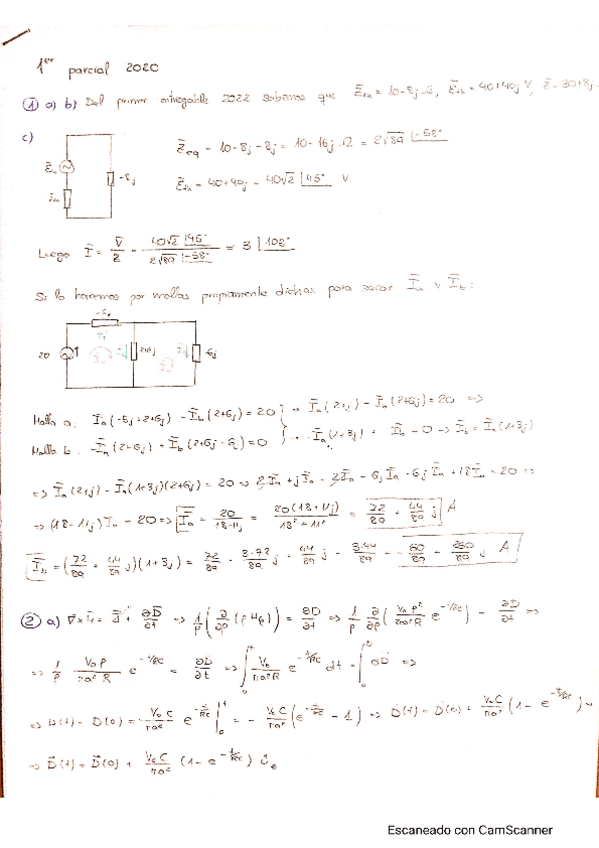 1er parcial 2020
① a) b) Del primer entregable 2022 sabemos que Z̄th = 10-8j Ω, Ēth = 40+40j V, Z̄ = 30+8j
c)
Z̄eq = 10-8j-8j = 10-16j Ω = 2√89 ∠-58°
Ēth = 40+40j = 40√2 ∠45° V
Ēth
Z̄th
-8j
Luego Ī = V̄/Z̄ = 40√2 ∠45° / 2√89 ∠-58° = 3 ∠103°
Si lo hacemos por mallas propiamente dichas para sacar Īa y Īb:
20
2+6j
-6j
Malla a: Īa(-5j+2+6j) - Īb(2+6j) = 20 → Īa(2+j) - Īb(2+6j) = 20 ⇒
Malla b: -Īa(2+6j) + Īb(2+6j-6j) = 0 → -Īa(1+3j) + Īb = 0 → Īb = Īa(1+3j)
⇒ Īa(2+j) - Īa(1+3j)(2+6j) = 20 ⇒ 2Īa + jĪa - 2Īa - 6jĪa - 6jĪa + 18Īa = 20 ⇒
⇒ (18-11j)Īa = 20 ⇒ Īa = 20/18-11j = 20(18+11j)/18²+11² = 72/89 + 44/89 j A
Īb = (72/89 + 44/89 j)(1+3j) = 72/89 + 3·72/89 j + 44/89 j - 3·44/89 = -60/89 + 260/89 j A
② a) ∇×H̄ = J̄ + ∂D̄/∂t ⇒ 1/ρ (∂/∂ρ (ρHφ)) = ∂D/∂t ⇒ 1/ρ ∂/∂ρ (V₀ρ²/2πa²R e^-t/RC) = ∂D/∂t ⇒
⇒ 1/ρ V₀ρ/πa²R e^-t/RC = ∂D/∂t ⇒ ∫₀ᵗ V₀/πa²R e^-t/RC dt = ∫₀ᵗ ∂D ⇒
⇒ D(t) - D(0) = -V₀C/πa² e^-t/RC |₀ᵗ = -V₀C/πa² (e^-t/RC - 1) ⇒ D(t) = D(0) + V₀C/πa² (1-e^-t/RC) ⇒
⇒ D̄(t) = D̄(0) + V₀C/πa² (1-e^-t/RC)
Escaneado con CamScanner